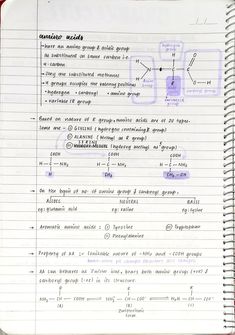 amino acids
→ have an amino group & acidic group
as substituent on same carbon i.e.
α-carbon
→ They are substituted methanes
→ 4 groups occupies the valency positions
• hydrogen • carboxyl • amino group
• variable (R group)
hydrogen group
H
H
N
C
C
O
OH
H
R
amino group
variable group
→ Based on nature of R group, amino acids are of 20 types.
Some are - ① GLYCINE (hydrogen containing R group)
② ALANINE (Methyl as R group)
③ SERINE (hydroxy methyl as R group)
COOH COOH COOH
H-C-NH₂ H-C-NH₂ H-C-NH₂
H CH₃ CH₂-OH
→ On the basis of no. of amino group & carboxyl group.
ACIDIC NEUTRAL BASIC
eg: glutamic acid eg: valine eg: lysine
→ Aromatic amino acids: ① Tyrosine ③ Tryptophan
② Phenylalanine
→ Property of AA :- Ionizable nature of -NH₂ and -COOH groups
→ AA can behaves as Zwitter ion, bears both amino group (+ve) &
carboxyl group (-ve) in its structure
R R R
NH₃ - CH - COOH ⇌ NH₃ - CH - COO⁻ ⇌ H₂N - CH - COO⁻
(A) (B) (C)
Zwitterionic
form